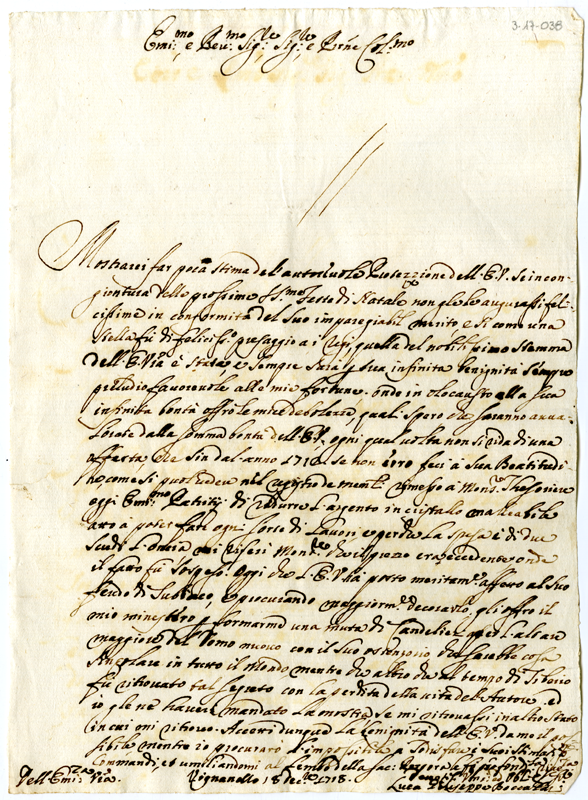 3-17-038
Emi:mo e Rev:mo Sig:re Sig:re e Prne Col:mo
Mostrarei far poca stima del autorevole Protezzione dell'E.V. se in con-
gionture delle prossime SS.me Feste di Natale non gle le augurassi feli-
cissime in conformità del suo impareggiabil merito, e si come una
stella fù di felicis:o presaggio a i Rè, quella del nobilissimo stemma
dell'E. Vra è stata, e sempre sarà p sua infinita benignità sempre
preludio favorevole alle mie fortune. onde in olocausto alla sua
infinita bontà offro le mie debolezze, quali spero che saranno ava-
lorate dalla somma bontà dell'E.V. ogni qual volta non si rida di una
offerta, che sin dal anno 1710 se non erro feci à Sua Beatitudi-
ne come si può vedere nel registro de meml: rimesso a Mons:r Thesoriere
oggi Emi:mo Patritij di ridurre l'argento in cristallo maleabile
atto a poter farci ogni sorte di lavori, e perche la spesa è di due
scudi l'oncia mi riferì Mons:re che il prezzo era eccedente onde
il fatto fù sospeso. Oggi che l'E. Vra porto meritam:e affetto al suo
feudo di Subiaco, e procurando maggiorm:e decorarlo, gli offro il
mio ministero p formarne una muta di Candelieri per l'altare
maggiore del Domo nuovo con il suo ostensorio che sarebbe cosa
singolare in tutto il Mondo mentre che altro che al tempo di Tiberio
fù ritrovato tal segreto con la perdita della vita del Autore, ed
io gle ne haverei mandato la mostra, se mi ritrovassi in altro stato
in cui mi ritrovo. Accetti dunque la benignità dell'E.V. da me il pos-
sibile mentre io procurarò l'impossibile a sodisfare i suoi stimatis:mi
Commandi, et umiliandomi al lembo della sac: Porpora
Dell'Emi:za Vra.
Vignanello 18 Dec:re 1718.
Luca Giuseppe